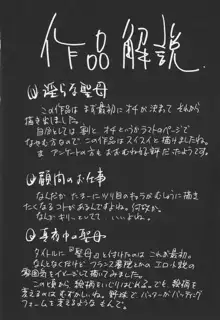 作品解説.
① 淫らな聖母
この作品は まず最初に オチ が決まって それから
描き出しました。
自分としては 割と オチというかラストのページで
なやむ方なので この作品はスイスイと描けましたね。
まァ アンケートの方も おおむね好評だったようです。
② 顧問のお仕事
なんだか たまーにツリ目のキャラがむしょうに描き
たくなるコトがあるんですよね。何故か。
なんか キリッ としてて いいよね。
③ 真夜中の聖母
タイトルに「聖母」と付けたのは これが最初。
なんとなくだけど フランス書院とかの エロ小説の
雰囲気をイメージして描いてみました。
この頃から 絵柄をいじりはじめる。でも、絵柄を
変えるのは むずかしいね。野球で バッターがバッティング
フォームを変えるようなもんで